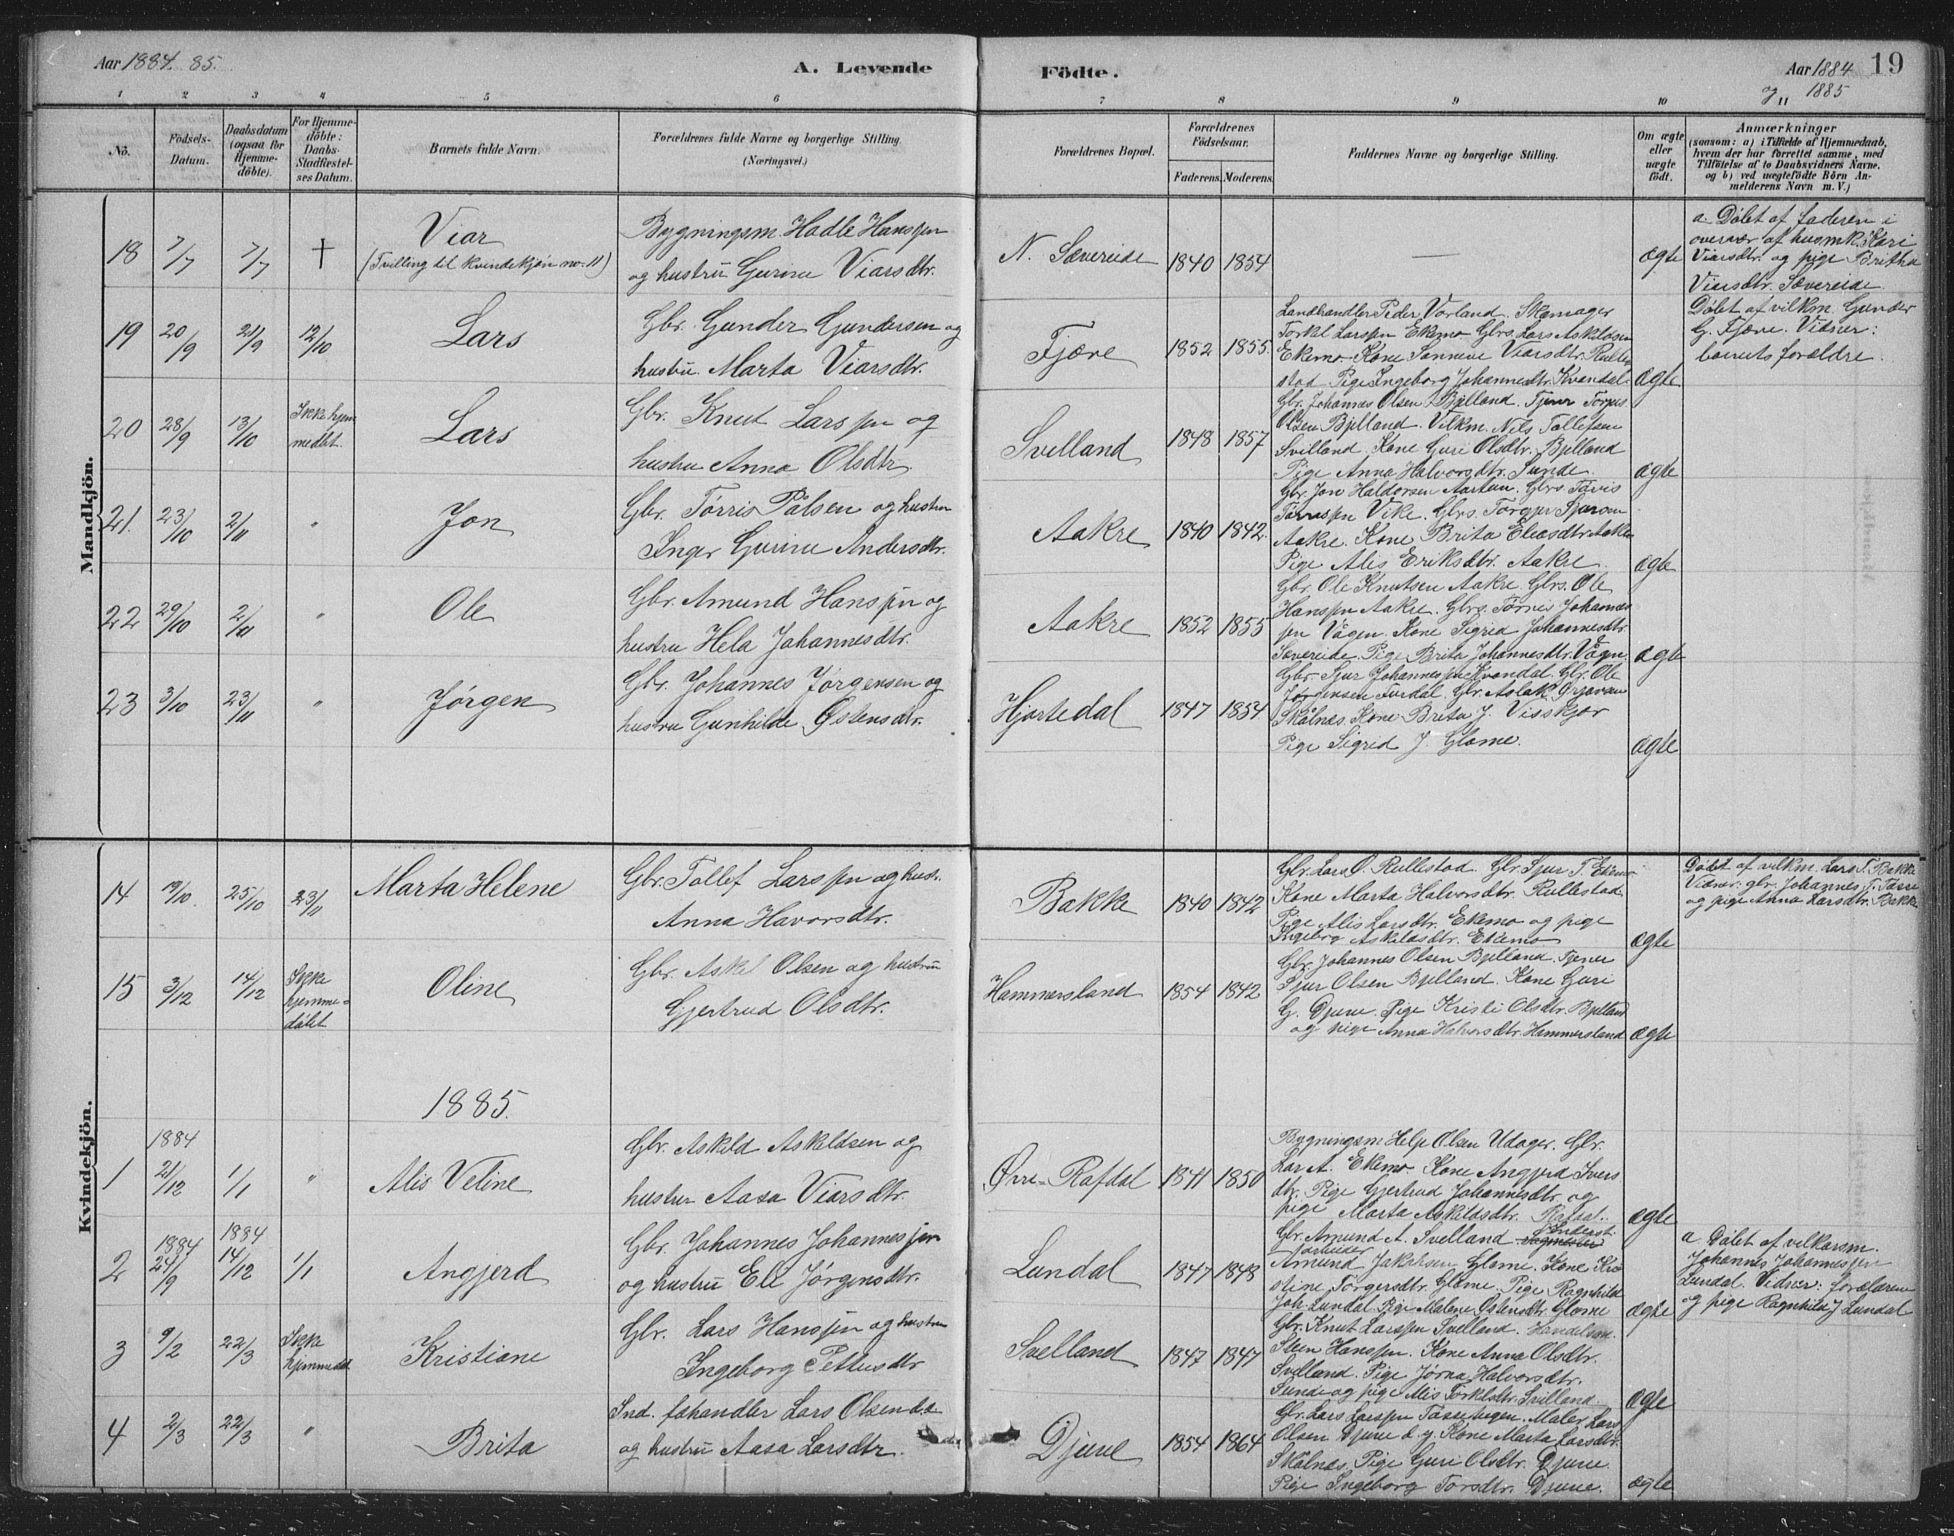 Aar 1884. 85.
A. Levende
Födte.
Aar 1884
19
og 1885
1 2 3 4 5 6 7 8 9 10 11
No.
Födsels-
Datum.
Daabsdatum
(ogsaa for
Hjemme-
döbte).
For Hjemme-
döbte:
Daabs-
Stadfæstel-
ses Datum.
Barnets fulde Navn.
Forældrenes fulde Navne og borgerlige Stilling.
(Næringsvei.)
Forældrenes Bopæl.
Forældrenes
Födselsaar.
Faderens. Moderens.
Faddernes Navne og borgerlige Stilling.
Om ægte
eller
uægte
födt.
Anmærkninger
(saasom: a) i Tilfælde af Hjemmedaab,
hvem der har forrettet samme, med
Tilföielse af to Daabsvidners Navne,
og b) ved uægtefödte Börn An-
melderens Navn m. V.)
Mandkjön.
18 7/7 7/7 †
Viar
(Tvilling til kvindekjön no. 11)
Bygningsm. Hadle Hanssen
og hustru Gurine Viarsdtr.
N. Sævereide 1840 1854 — ægte
a. Døbt af faderen i
overvær af husmk. Kari
Viarsdtr. og pige Britha
Viarsdtr. Sævereide.
19 20/9 21/9 12/10
Lars
Gbr. Gunder Gundersen og
hustru Marta Viarsdtr.
Fjære 1852 1855.
Landhandler Peder Vorland. Skomager
Torkel Larssen Ekemo. Gbrs. Lars Askildsen
Ekemo. Kone Sønneve Viarsdtr. Rulle-
stad. Pige Ingeborg Johannesdtr. Kvandal.
ægte
Døbt af vilkm. Gunder
G. Fjære. Vidner:
barnets forældre.
20 28/9 13/10
Ikke hjem
medøbt.
Lars
Gbr. Knut Larssen og
hustru Anna Olsdtr.
Svelland 1848 1857
Gbr. Johannes Olsen Bjelland. Tjener Torris
Olsen Bjelland. Vilkm. Nils Tollefsen
Svelland. Kone Guri Olsdtr. Bjelland
Pige Anna Halvorsdtr. Sunde.
ægte
21. 23/10 2/11 "
Jon
Gbr. Tørris Pålsen og hustru
Inger Gurine Andersdtr.
Aakre 1840 1842.
Gbr. Jon Haldorsen Aartun. Gbrs. Tørris
Tørressen Vike. Gbrs. Torger Sjursen
Aakre. Kone Brita Eliasdtr. Aakre
Pige Alis Eriksdtr. Aakre.
ægte
22 29/10 2/11 "
Ole
Gbr. Amund Hanssen og
hustru Hela Johannesdtr.
Aakre 1852 1855
Gbr. Ole Knutsen Aakre. Gbrs. Ole
Hanssen Aakre. Gbrs. Tørris Johannes-
sen Vågen. Kone Sigrid Johannesdtr.
Sævereide. Pige Brita Johannesdtr. Vågn.
ægte
23 3/10 23/11 "
Jørgen
Gbr. Johannes Jørgensen og
hustru Gunhilde Østensdtr.
Hjortedal 1847 1854
Gbr. Sjur Johannessen Kvandal. Gbr. Ole
Jørgensen Furdal. Gbr. Aslak Grjævan
Skålnæs. Kone Brita J. Visskjær
Pige Sigrid J. Glame.
ægte
Kvindekjön.
14 19/10. 25/10 23/11
Marta Helene
Gbr. Tollef Larssen og hust.
Anna Havorsdtr.
Bakke 1840 1842
Gbr. Lars O. Rullestad. Gbr. Sjur T. Ekemo
Kone Marta Halvorsdtr. Rullestad
Pige Alis Larsdtr. Ekemo og pige
Ingeborg Askildsdtr. Ekemo
ægte
Døbt af vilkm. Lars T. Bakke
Vidner: gbr. Johannes T. Tasse
og pige Anna Larsdtr. Bakke
15 3/12 14/12
Ikke
hjemme-
døbt
Oline
Gbr. Askel Olsen og hustru
Gjertrud Olsdtr.
Hammersland 1854 1842
Gbr. Johannes Olsen Bjelland. Tjener
Sjur Olsen Bjelland. Kone Guri
G. Djuve. Pige Kristi Olsdtr. Bjelland
og pige Anna Halvorsdtr. Hammersland
ægte
1885.
1884
1 21/12 1/1 "
Alis Veline
Gbr. Askild Askildsen og
hustru Aasa Viarsdtr.
Øvre-Rafdal 1841 1850
Bygningsm. Helje Olsen Udager. Gbr.
Lars A. Ekemo. Kone Angjerd Ivers
dtr. Pige Gjertrud Johannesdtr. og
pige Marta Askildsdtr. Rafdal.
ægte
1884 1884
2 24/9 14/12 1/1
Angjerd
Gbr. Johannes Johannessen
og hustru Eli Jørgensdtr.
Lundal 1847 1848
Gbr. Amund A. Svelland
arbeider
Amund Jakobsen Glame. Kone Kri
stine Torgersdtr. Glame. Pige Ragnhild
Joh. Lundal. Pige Malene Østensdtr. Glame
ægte
a. Døbt af vilkarsm.
Johannes Johannessen
Lundal. Vidner: forældrene
og pige Ragnhild J. Lundal
3 9/2 22/3
Ikke
hjemmedøbt
Kristiane
Gbr. Lars Hanssen og hustru
Ingeborg Pettersdtr.
Svelland 1847 1847
Gbr. Knut Larssen Svelland. Handelsm.
Steen Hanssen. Kone Anna Olsdtr.
Svelland. Pige Jørna Halvorsdtr.
Sunde og pige Alis Torkelsdtr. Svelland
ægte
4 2/3 22/3 "
Brita
Ind. føhandler Lars Olsen
og hustru Aasa Larsdtr.
Djuve 1854 1864
Gbr. Lars Larssen Tassehegen. Maler Lars
Olsen Djuve d. y. Kone Marta Larsdtr.
Skålnæs. Pige Guri Olsdtr. Djuve
Pige Ingeborg Torsdtr. Djuve.
ægte